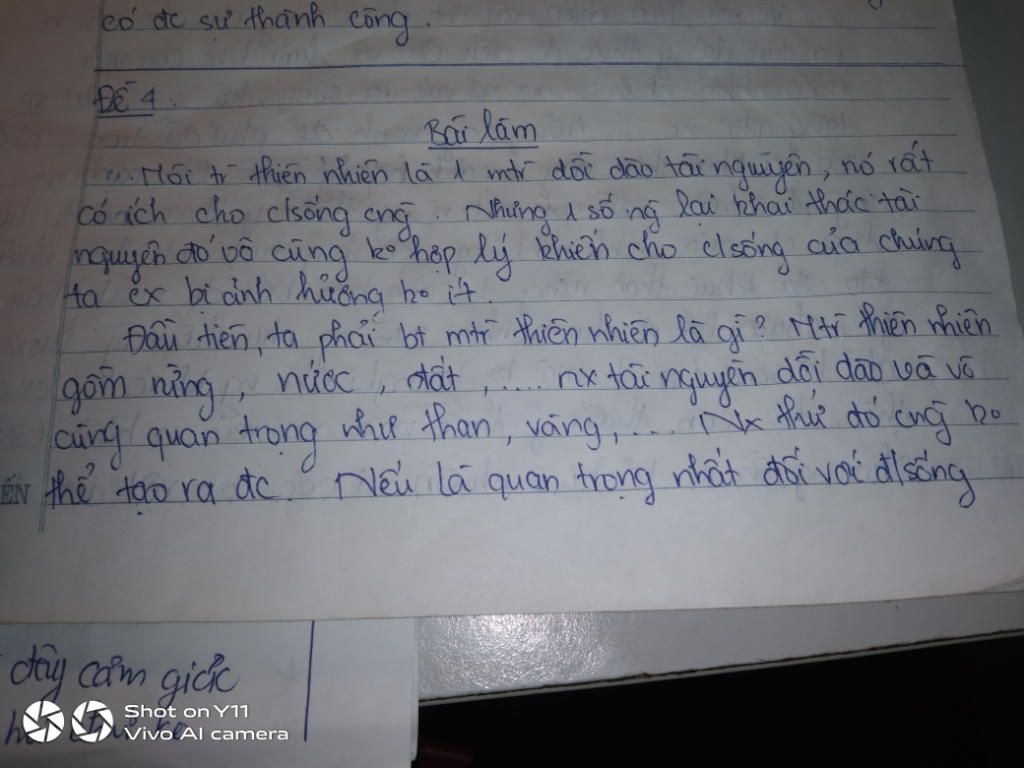 có đc sự thành công.
Đề 4.
Bài làm
Môi tr thiên nhiên là 1 mtr dồi dào tài nguyên, nó rất
có ích cho c/sống cng. Nhưng 1 số ng lại khai thác tài
nguyên đó vô cùng ko hợp lý khiến cho c/sống của chúng
ta cx bị ảnh hưởng ko ít.
Đầu tiên, ta phải bt mtr thiên nhiên là gì? Mtr thiên nhiên
gồm rừng, nước, đất, .... nx tài nguyên dồi dào và vô
cùng quan trọng như than, vàng, ... Nx thứ đó cng ko
ẾN thể tạo ra đc. Nếu là quan trọng nhất đối với đ/sống
đầy cảm giác
Shot on Y11
Vivo AI camera